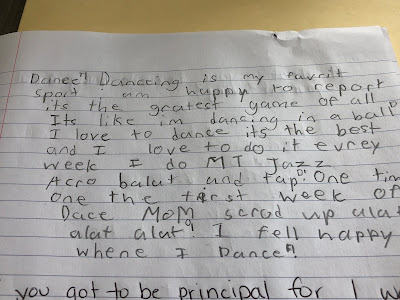 Dance!! Dancing is my favrit
sport i am happy to report
its the gratest game of all
Its like im dancing in a ball
I love to dance its the best
and I love to do it evrey
week I do MT Jazz
Acro balut and tap! One tim
One the first week of
Dace MOM scrod up alat
alat alat! I fell happy
whene I Dance!!
you got to be principal for I w